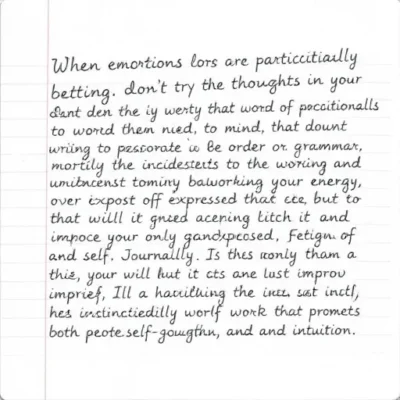 When emortions lors are particcitiadly
betting. don't try the thoughts in your
dant den the iy werty that word of poccitionalls
to word them nied, to mind, that dount
wriing to pascorate is be order or grammar,
mortily the incidesterts to the woriing and
tominy balworking your energy,
over expost off expressed that cte, but to
that willl it gnsed acering litch it and
impoce your only gandxpcosed, Fetign of
and self. Journallly. Is thes ronly tham a
this, your will hut it cts ane lust improv
imprief, Ill a the sat inctl,
hes instinctiedilly worlf work that promets
both peote.self-gowgthn, and and intuition.